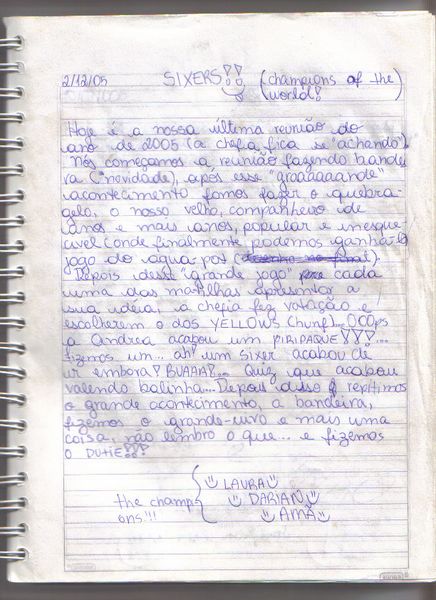 2/12/05 SIXERS!! (champions of the world!)
Hoje é a nossa última reunião do
ano de 2005 (a chefia fica se "achando").
Nós começamos a reunião fazendo bandei
ra (novidade), após esse "graaaaaande"
acontecimento fomos fazer o quebra-
gelo, o nosso velho, companheiro de
anos e mais anos, popular e inesque
cível (onde finalmente podemos ganhar) o
jogo do agua-pos
Depois desse "grande jogo" cada
uma das matilhas apresentor a
sua idéia, a chefia fez votação e
escolherem o dos YELLOWS (hunf)... OOOps
a Andrea acabou um PIRIPAQUE!!!...
fizemos um... ah! um sixer acabou de
ir embora! BUAAA!... Quiz que acabou
valendo balinha... Depois disso repitimos
o grande acontecimento, a bandeira,
fizemos o grande-uivo e mais uma
coisa, não lembro o que... e fizemos
o DUTIE!!!
the champi
ons!!!
LAURA
DARIAN
AMÃ